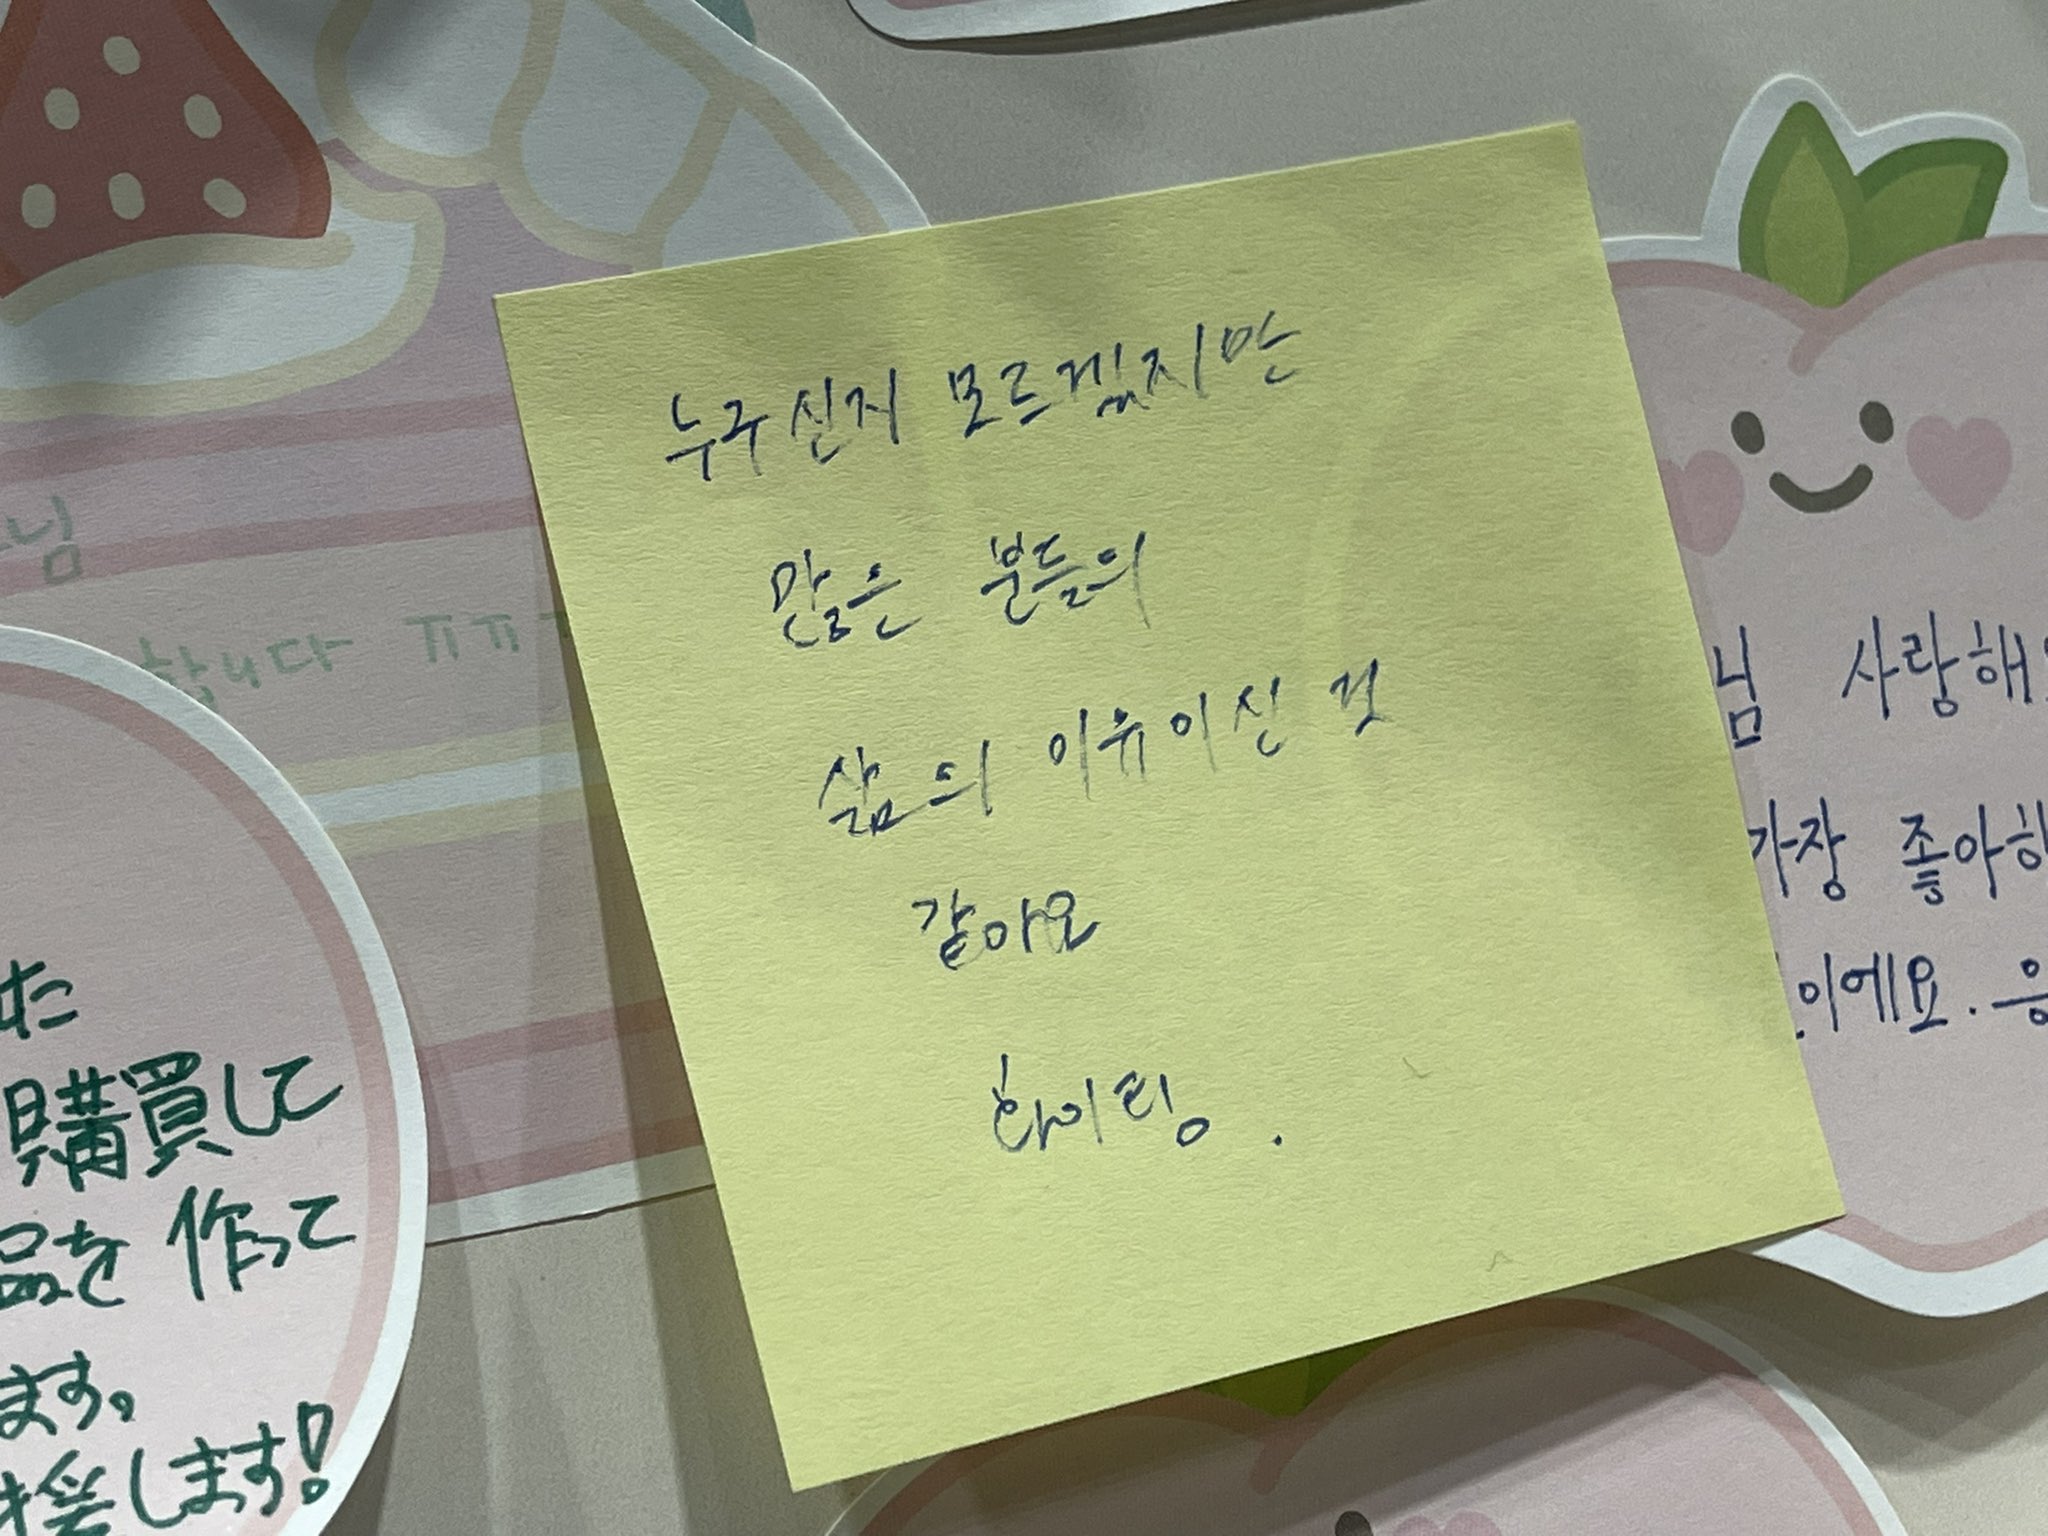 누구신지 모르겠지만
많은 분들의
삶의 이유이신 것
같아요
화이팅.
님
합니다 ㅠㅠ
た
購買して
品を作って
ます。
援します!
님 사랑해
가장 좋아하
이에요. 응